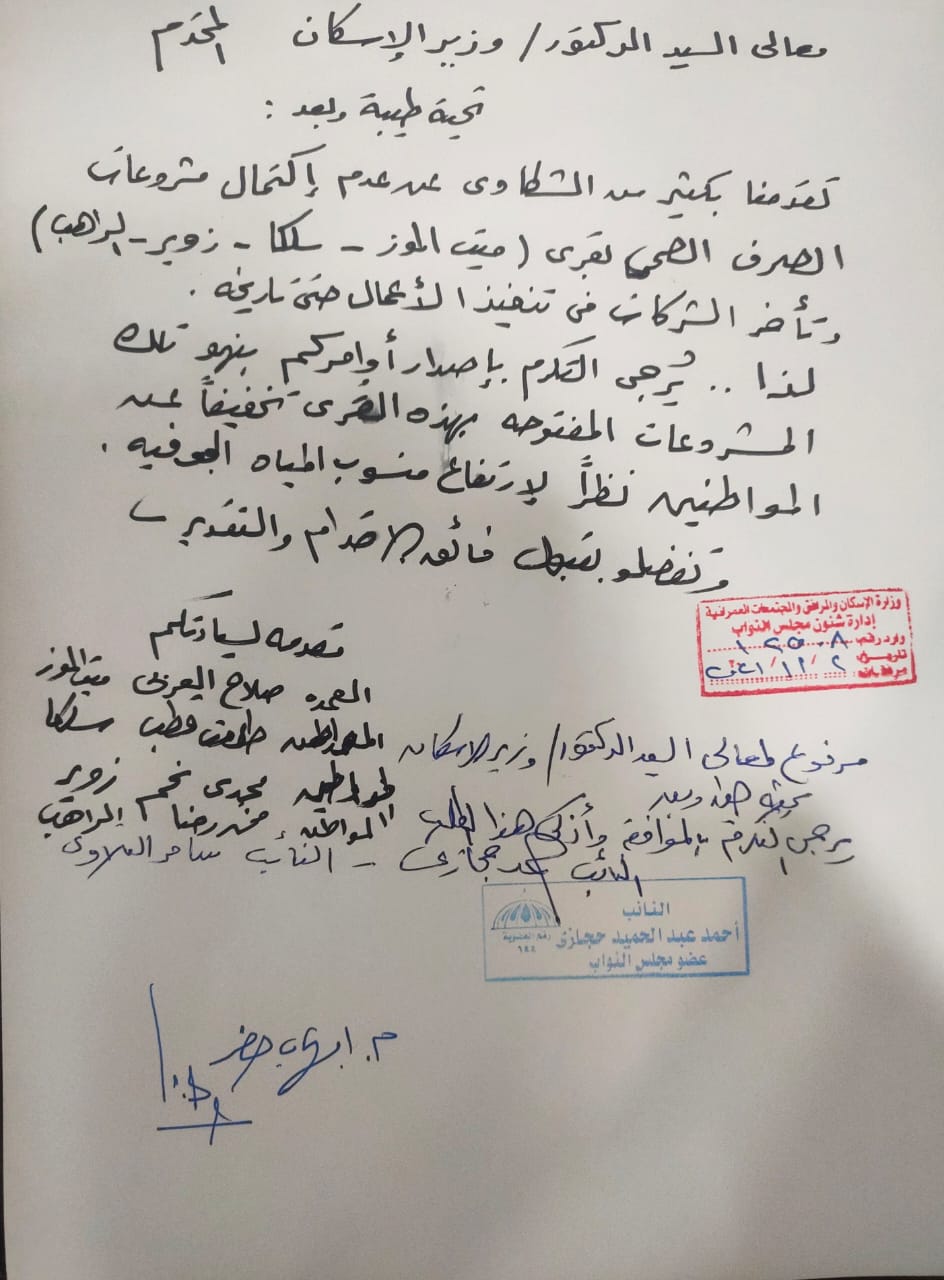 معالى السيد الدكتور / وزير الإسكان المحترم
تحية طيبة وبعد :
تقدمنا بكثير من الشكاوى عن عدم إكتمال مشروعات
الصرف الصحى بقرى ( ميت الموز - سلكا - زوير - الراهب )
وتأخر الشركات فى تنفيذ الأعمال حتى تاريخه .
لذا .. يُرجى التكرم بإصدار أوامركم بنهو تلك
المشروعات المفتوحه بهذه القرى تخفيفاً عن
المواطنين نظراً لإرتفاع منسوب المياه الجوفيه .
وتفضلو بقبول فائق الاحترام والتقدير
مقدمه لسيادتكم
العمده صلاح العربى ميت الموز
المواطن طلعت قطب سلكا
المواطن مجدى نجم زوير
المواطن رضا الراهب
وزارة الإسكان والمرافق والمجتمعات العمرانية
إدارة شئون مجلس النواب
وارد رقم
تاريخ ٢ / ١٢ /
مرفقات
مرفوع لمعالى السيد الدكتور / وزير الاسكان
تحية طيبة وبعد
يرجى التكرم بالموافقة وأزكى هذا الطلب
النائب أحمد حجازى - النائب سامر التلاوى
النائب
أحمد عبد الحميد حجازى
عضو مجلس النواب
رقم العضوية
١٤٤
م. ايهاب خضر